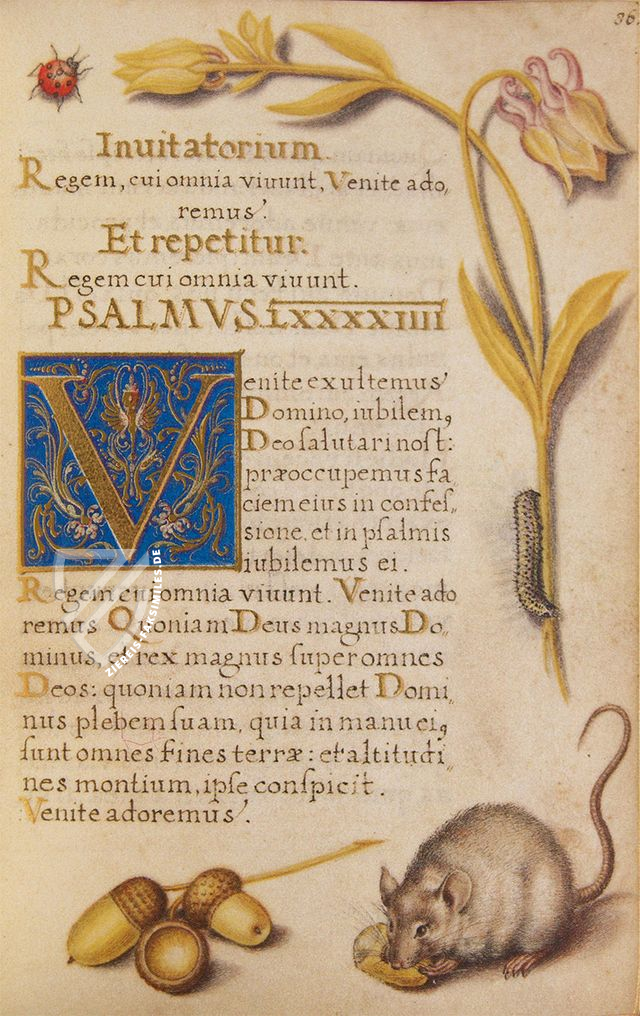 36.
Inuitatorium
Regem, cui omnia viuunt, Venite ado,,
remus.
Et repetitur.
Regem cui omnia viuunt.
PSALMVS. LXXXXIIII
Venite exultemus
Domino, iubilem9
Deo ſalutari noſt:
præoccupemus fa
ciem eius in confeſ,,
ſione, et in pſalmis
iubilemus ei.
Regem cui omnia viuunt. Venite ado
remus Quoniam Deus magnus Do,,
minus, et rex magnus ſuper omnes
Deos: quoniam non repellet Domi,,
nus plebem ſuam, quia in manu ei9
ſunt omnes fines terræ: et altitudi,,
nes montium, ipſe conſpicit.
Venite adoremus.
ZIEREIS-FAKSIMILES.DE